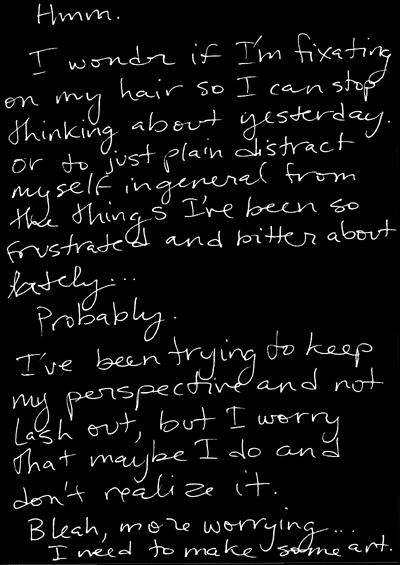 Hmm.
I wondr if I'm fixating
on my hair so I can stop
thinking about yesterday.
or to just plain distract
myself in general from
the things I've been so
frustrated and bitter about
lately...
Probably.
I've been trying to keep
my perspective and not
lash out, but I worry
that maybe I do and
don't realize it.
Bleah, more worrying...
I need to make some art.